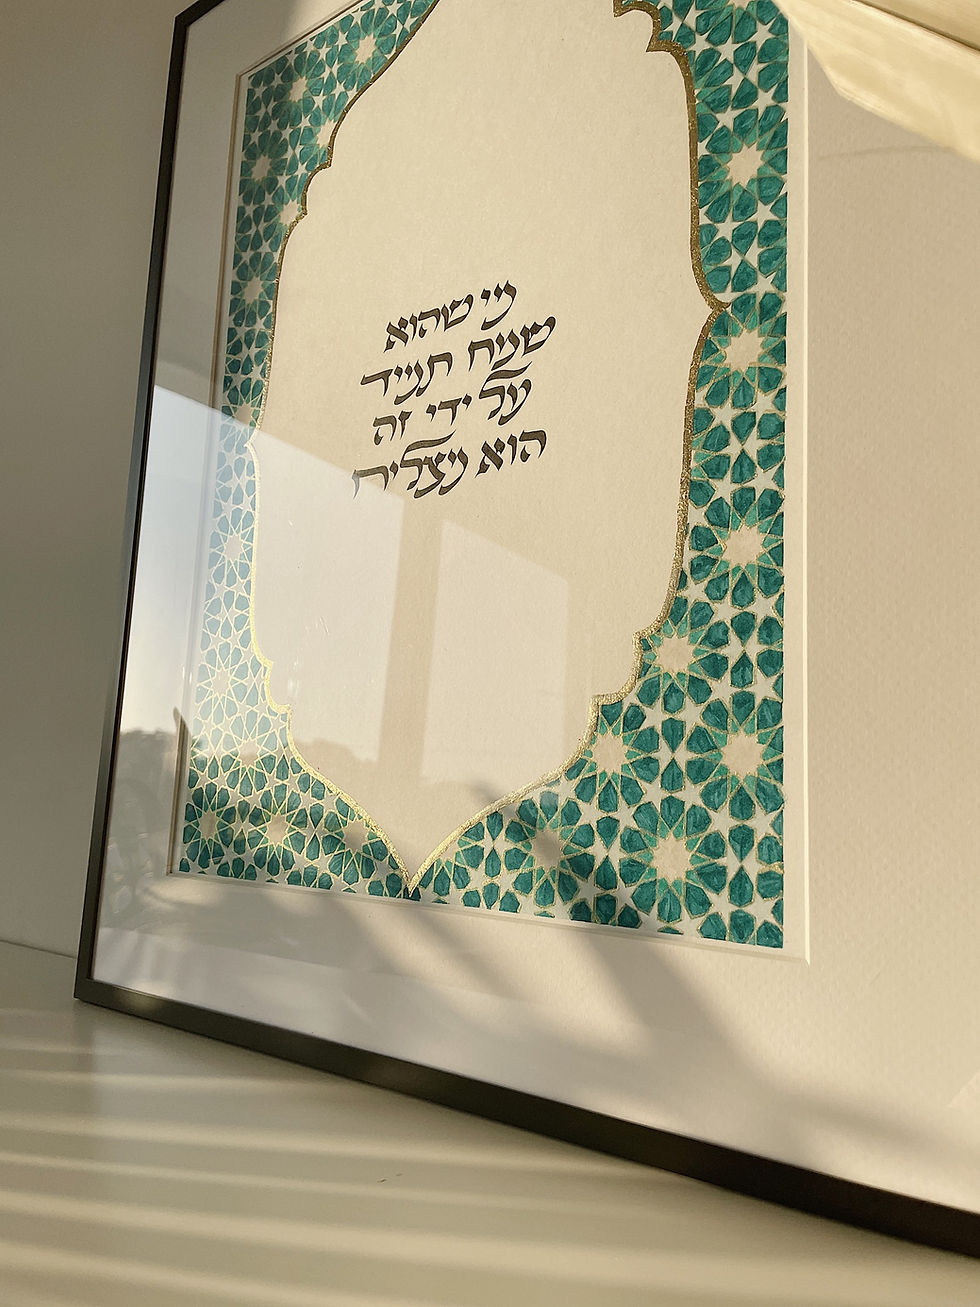 מי שהוא
שמח תמיד
על ידי זה
הוא מצליח